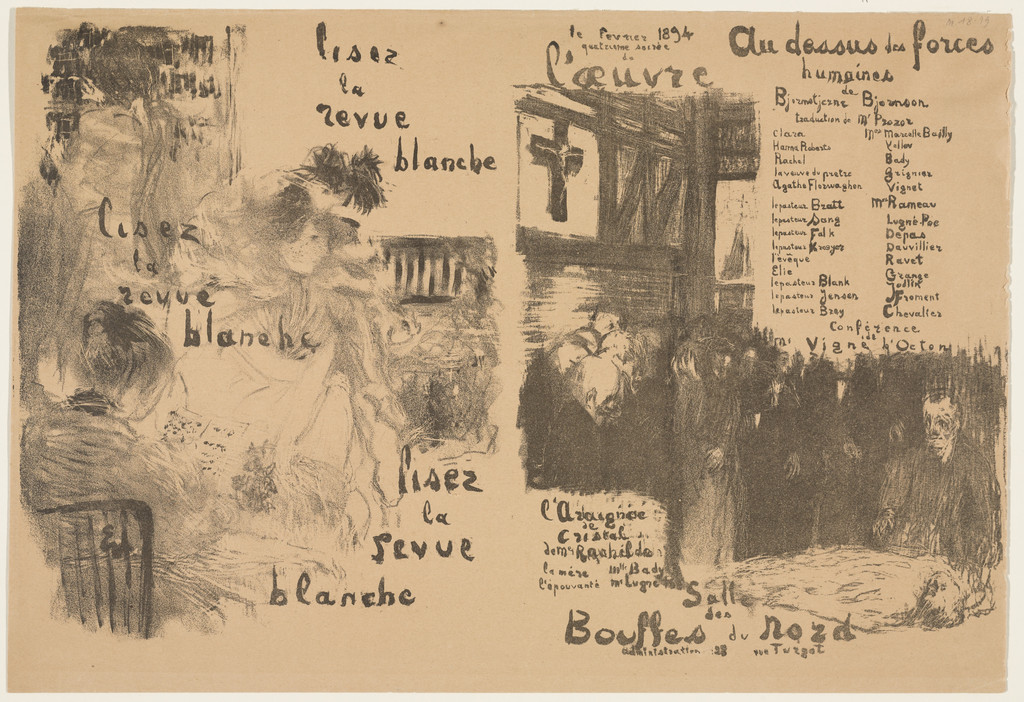 lisez
la
revue
blanche
lisez
la
revue
blanche
lisez
la
revue
blanche
le Fevrier 1894
quatrieme soirée
de
l'œuvre
Au dessus des forces
humaines
de
Bjornstjerne Bjornson
traduction de Mr Prozor
Clara Mmes Marcelle Bailly
Hanna Roberts
Rachel Bady
la veuve du pretre Grignier
Agatha Florvaghen Vignet
le pasteur Bratt Mrs Rameau
le pasteur Sang Lugné-Poe
le pasteur Falk Depas
le pasteur Kroeyer Dauvillier
l'évêque Ravet
Elie Grange
le pasteur Blank Joslin
le pasteur Jensen Froment
le pasteur Brey Chevalier
Conférence
de
Mr Vigné d'Octon
l'Araignée
de
Cristal
de Me Rachilde
la mère Mlle Bady
l'épouvanté Mr Lugné
Salle
des
Bouffes du Nord
administration: 23 rue Turgot